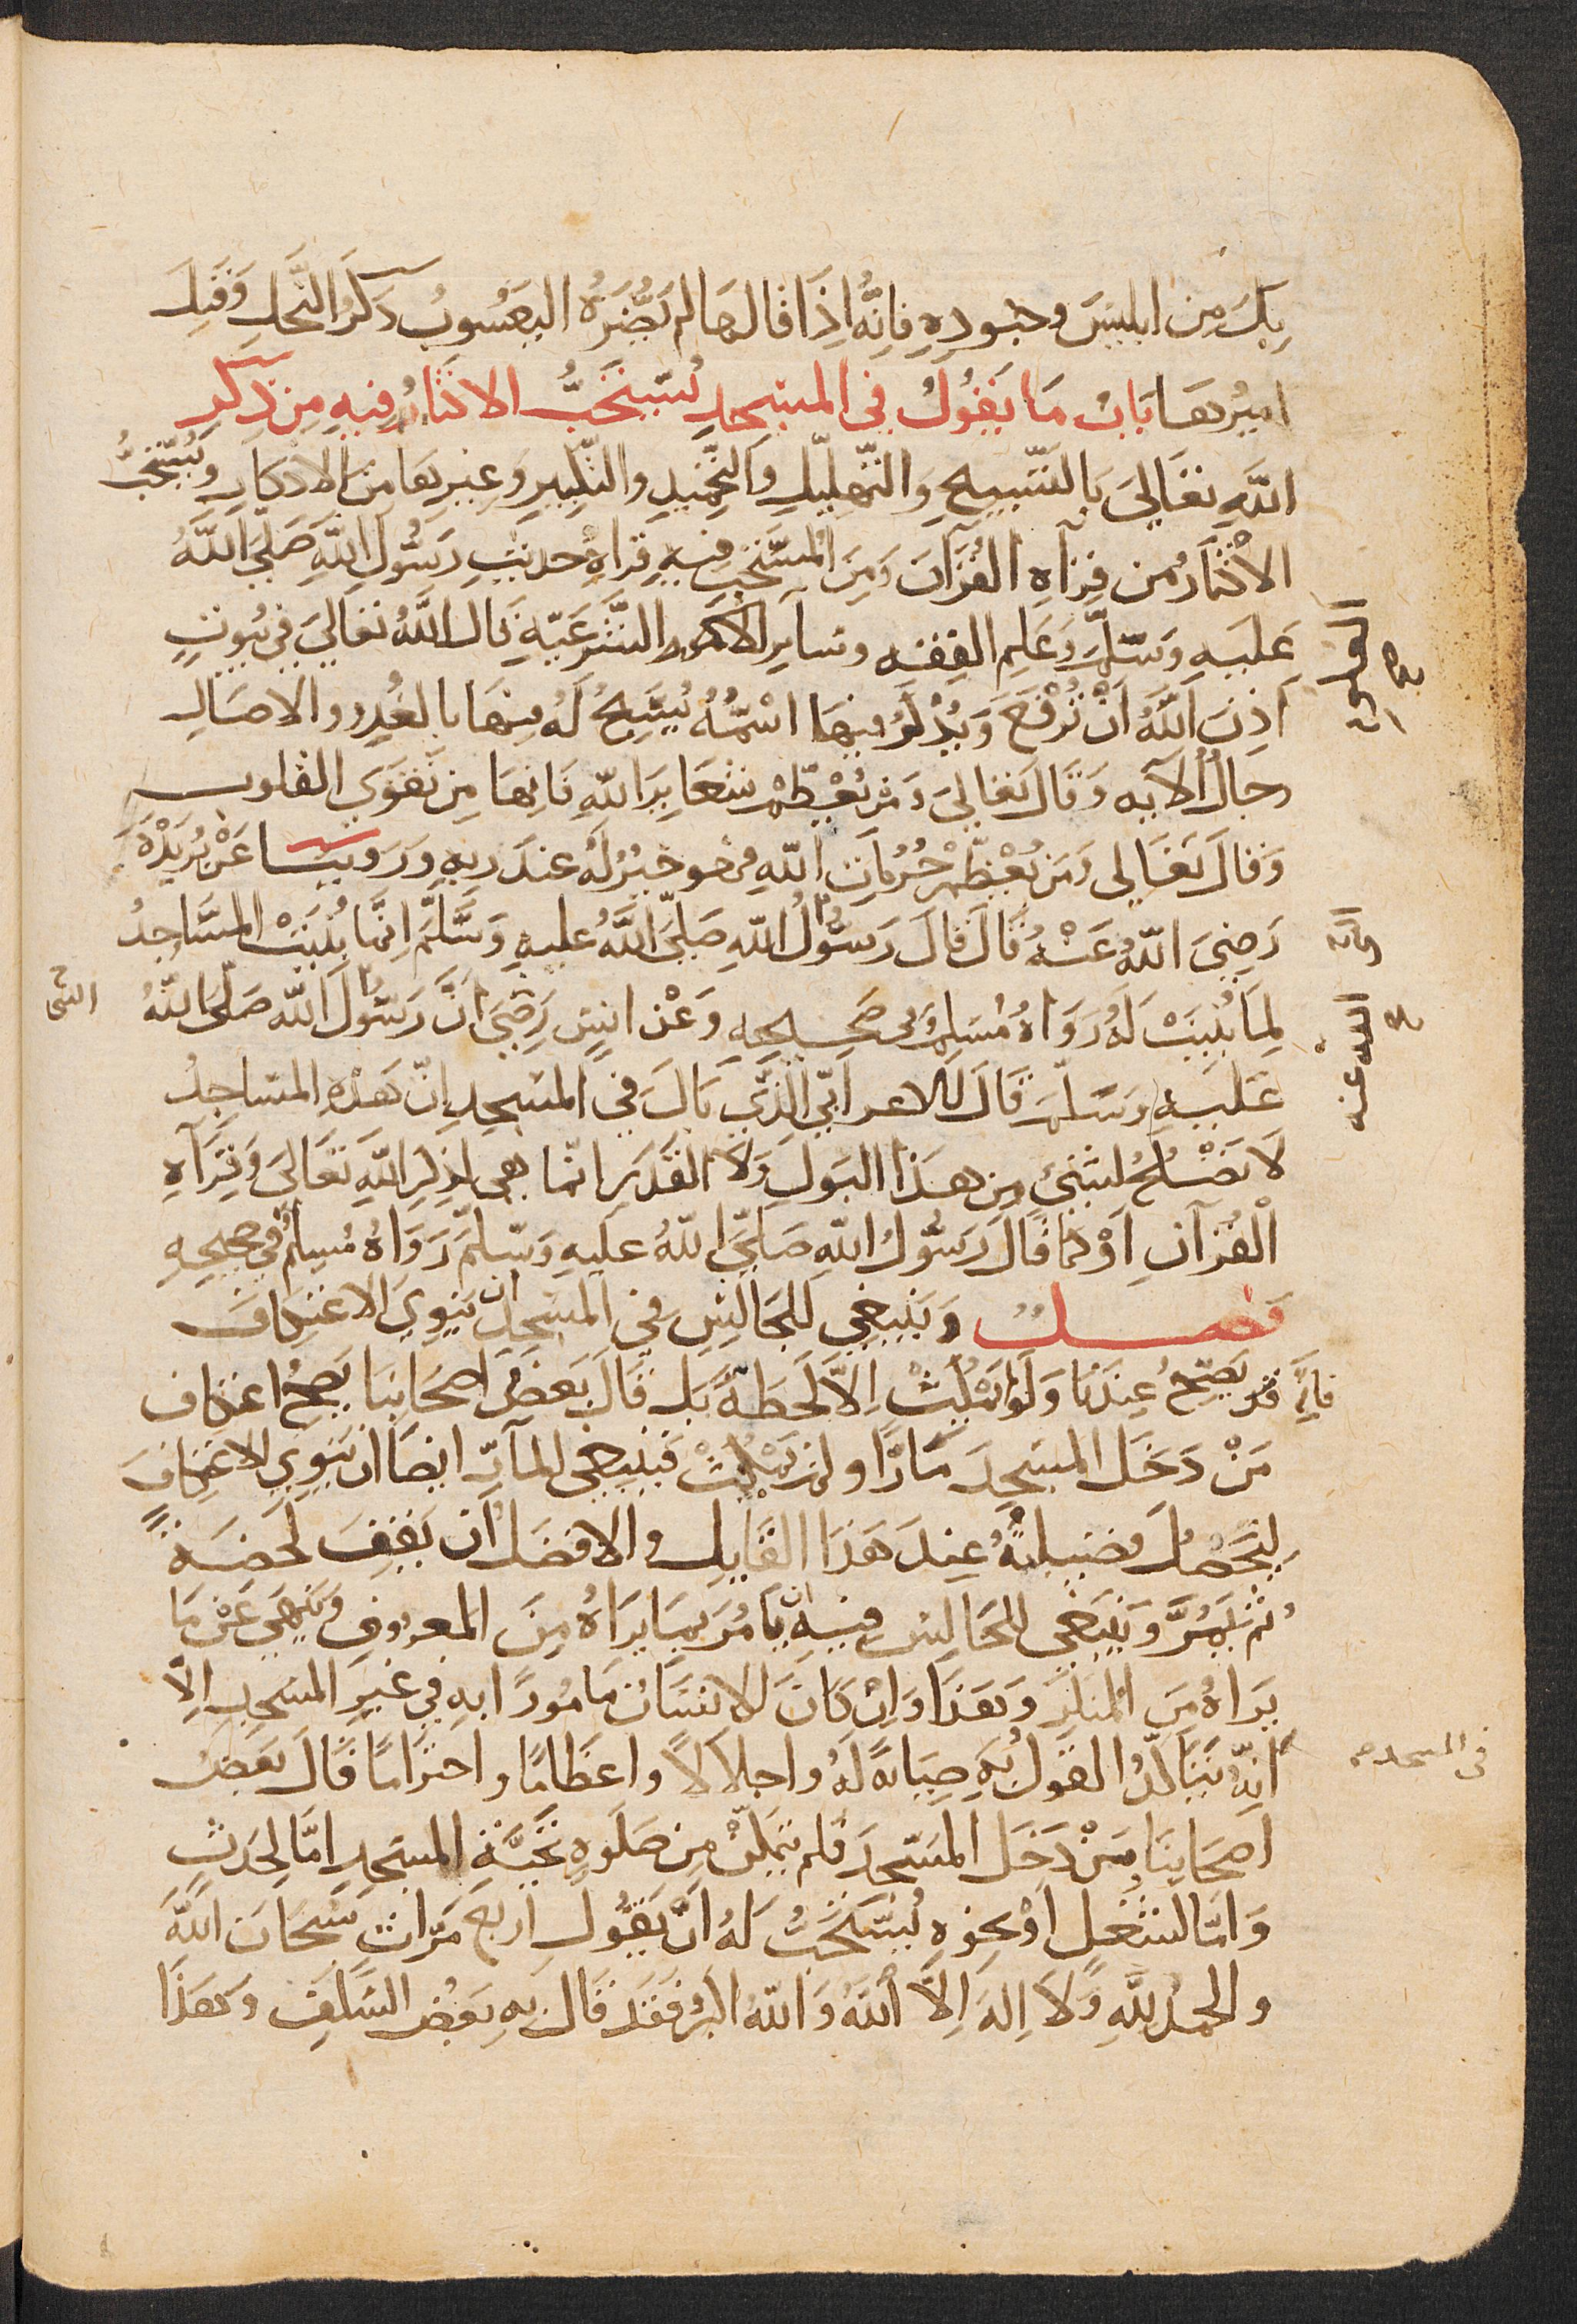 بك من ابليس وجنوده فانه اذا قالها لم تضره اليعسوب ذكر النحل وقيل
اميرها باب ما يقول في المسجد يستحب الاكثار فيه من ذكر
الله تعالى بالتسبيح والتهليل والتحميد والتكبير وغيرها من الاذكار ويستحب
الاكثار من قرآة القرآن ومن المستحب فيه قراة حديث رسول الله صلى الله
عليه وسلم وعلم الفقه وساير الامور الشرعية قال الله تعالى في بيوت
اذن الله ان ترفع ويذكر فيها اسمه يسبح له فيها بالغدو والاصال
رجال الآيه وقال تعالى ومن يعظم شعاير الله فانها من تقوى القلوب
وقال تعالى ومن يعظم حرمات الله فهو خير له عند ربه وروينا عن بريدة
رضي الله عنه قال قال رسول الله صلى الله عليه وسلم انما بنيت المساجد
لما بنيت له رواه مسلم في صحيحه وعن انس رضي ان رسول الله صلى الله
عليه وسلم قال للاعرابي الذي بال في المسجد ان هذه المساجد
لا تصلح لشئ من هذا البول ولا القذر انما هي لذكر الله تعالى وقرآة
القرآن او كما قال رسول الله صلى الله عليه وسلم رواه مسلم في صحيحه
فصل وينبغي للجالس في المسجد ان ينوي الاعتكاف
فانه قد يصح عندنا ولو لم يلبث الا لحظة بل قال بعض اصحابنا يصح اعتكاف
من دخل المسجد مارا ولم يلبث فينبغي للمآر ايضا ان ينوي الاعتكاف
ليحصل فضيلته عند هذا القايل والافضل ان يقف لحضة
ثم يمر وينبغي للجالس فيه ان يامر بما يراه من المعروف وينهى عن ما
يراه من المنكر وهذا وان كان الانسان مامورا به في غير المسجد الا
انه يتاكد القول به صيانة له واجلالا واعظاما واحتراما قال بعض
اصحابنا من دخل المسجد فلم يتمكن من صلوة تحية المسجد اما لحدث
واما لشغل او نحوه يستحب له ان يقول اربع مرات سبحان الله
والحمد لله ولا اله الا الله والله اكبر فقد قال به بعض السلف وهذا
في المسجد